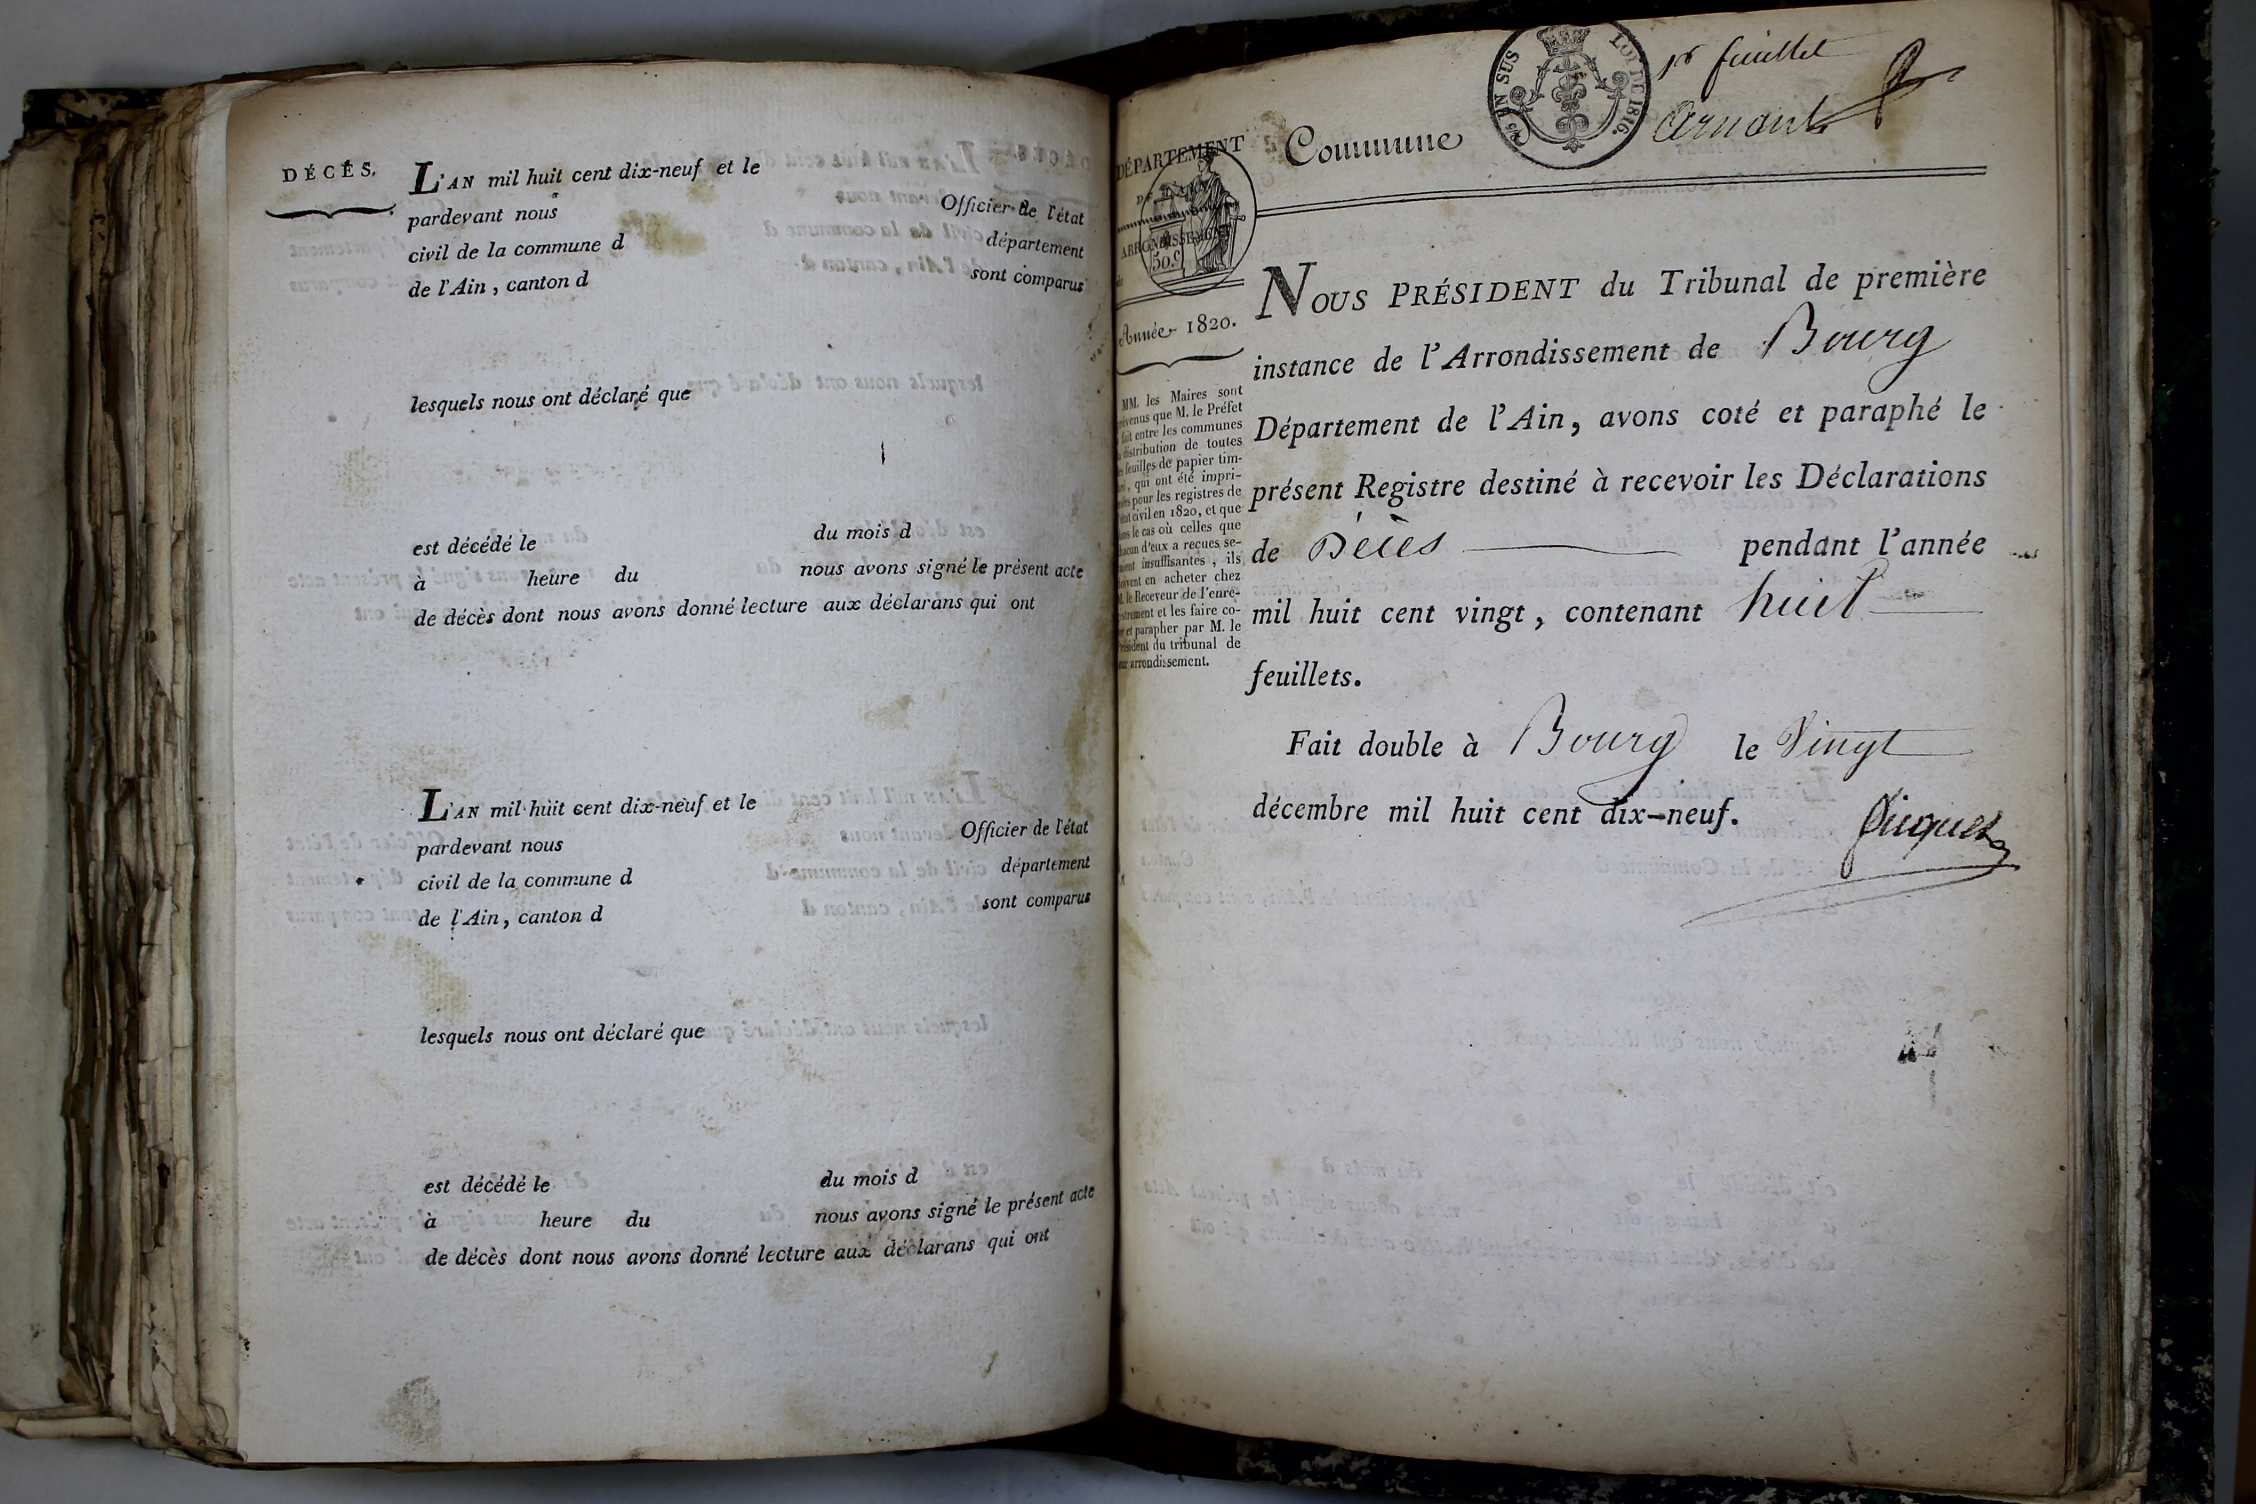 DÉCÈS.
L'AN mil huit cent dix-neuf et le
pardevant nous Officier de l'état
civil de la commune d département
de l'Ain, canton d sont comparus
lesquels nous ont déclaré que
est décédé le du mois d
à heure du nous avons signé le présent acte
de décès dont nous avons donné lecture aux déclarans qui ont
L'AN mil huit cent dix-neuf et le
pardevant nous Officier de l'état
civil de la commune d département
de l'Ain, canton d sont comparus
lesquels nous ont déclaré que
est décédé le du mois d
à heure du nous avons signé le présent acte
de décès dont nous avons donné lecture aux déclarans qui ont
1er feuillet
EN SUS LOI DE 1816.
DÉPARTEMENT
Commune
ARRONDISSEMENT
50.c
Année 1820.
MM. les Maires sont
prévenus que M. le Préfet
fait entre les communes
la distribution de toutes
les feuilles de papier tim-
bré, qui ont été impri-
mées pour les registres de
l'état civil en 1820, et que
dans le cas où celles que
chacun d'eux a reçues se-
roient insuffisantes, ils
doivent en acheter chez
M. le Receveur de l'enre-
gistrement et les faire co-
ter et parapher par M. le
Président du tribunal de
leur arrondissement.
NOUS PRÉSIDENT du Tribunal de première
instance de l'Arrondissement de Bourg
Département de l'Ain, avons coté et paraphé le
présent Registre destiné à recevoir les Déclarations
de Décès pendant l'année
mil huit cent vingt, contenant huit
feuillets.
Fait double à Bourg le Vingt
décembre mil huit cent dix-neuf.